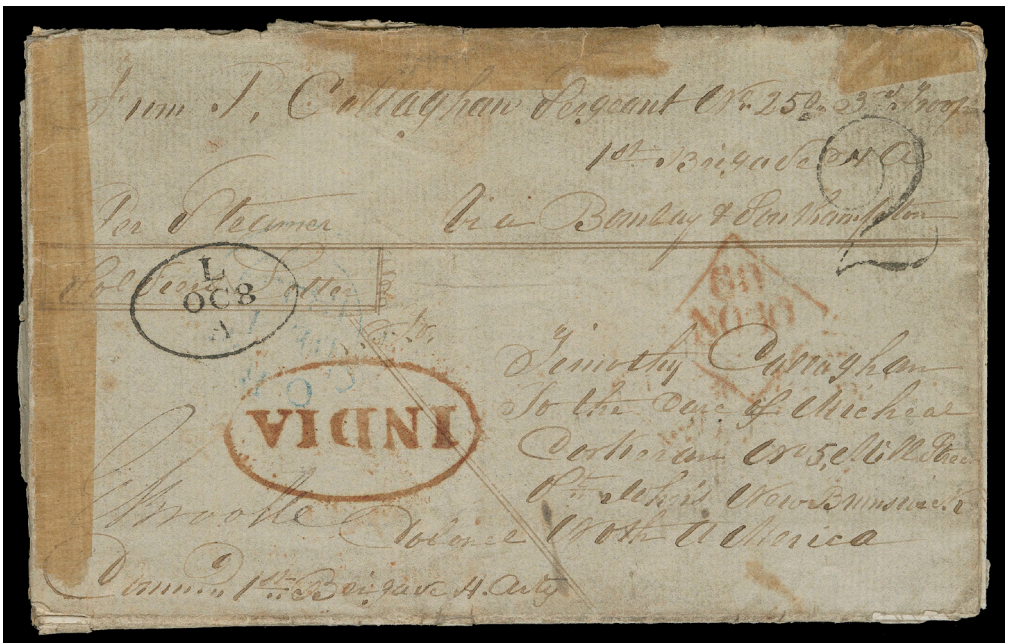 From P. Callaghan Sergeant No. 250 3rd Troop
1st Brigade H A
2
Per Steamer Via Bombay & Southampton
Soldiers Letter
L
OC 8
A
60
NO 10
To
Timothy Callaghan
To the Care of Micheal
Corkeran No 5 Mill Street
St John's New Brunswick
North America
INDIA
Brooke
Colonel
Commg 1st Brigade H. Arty